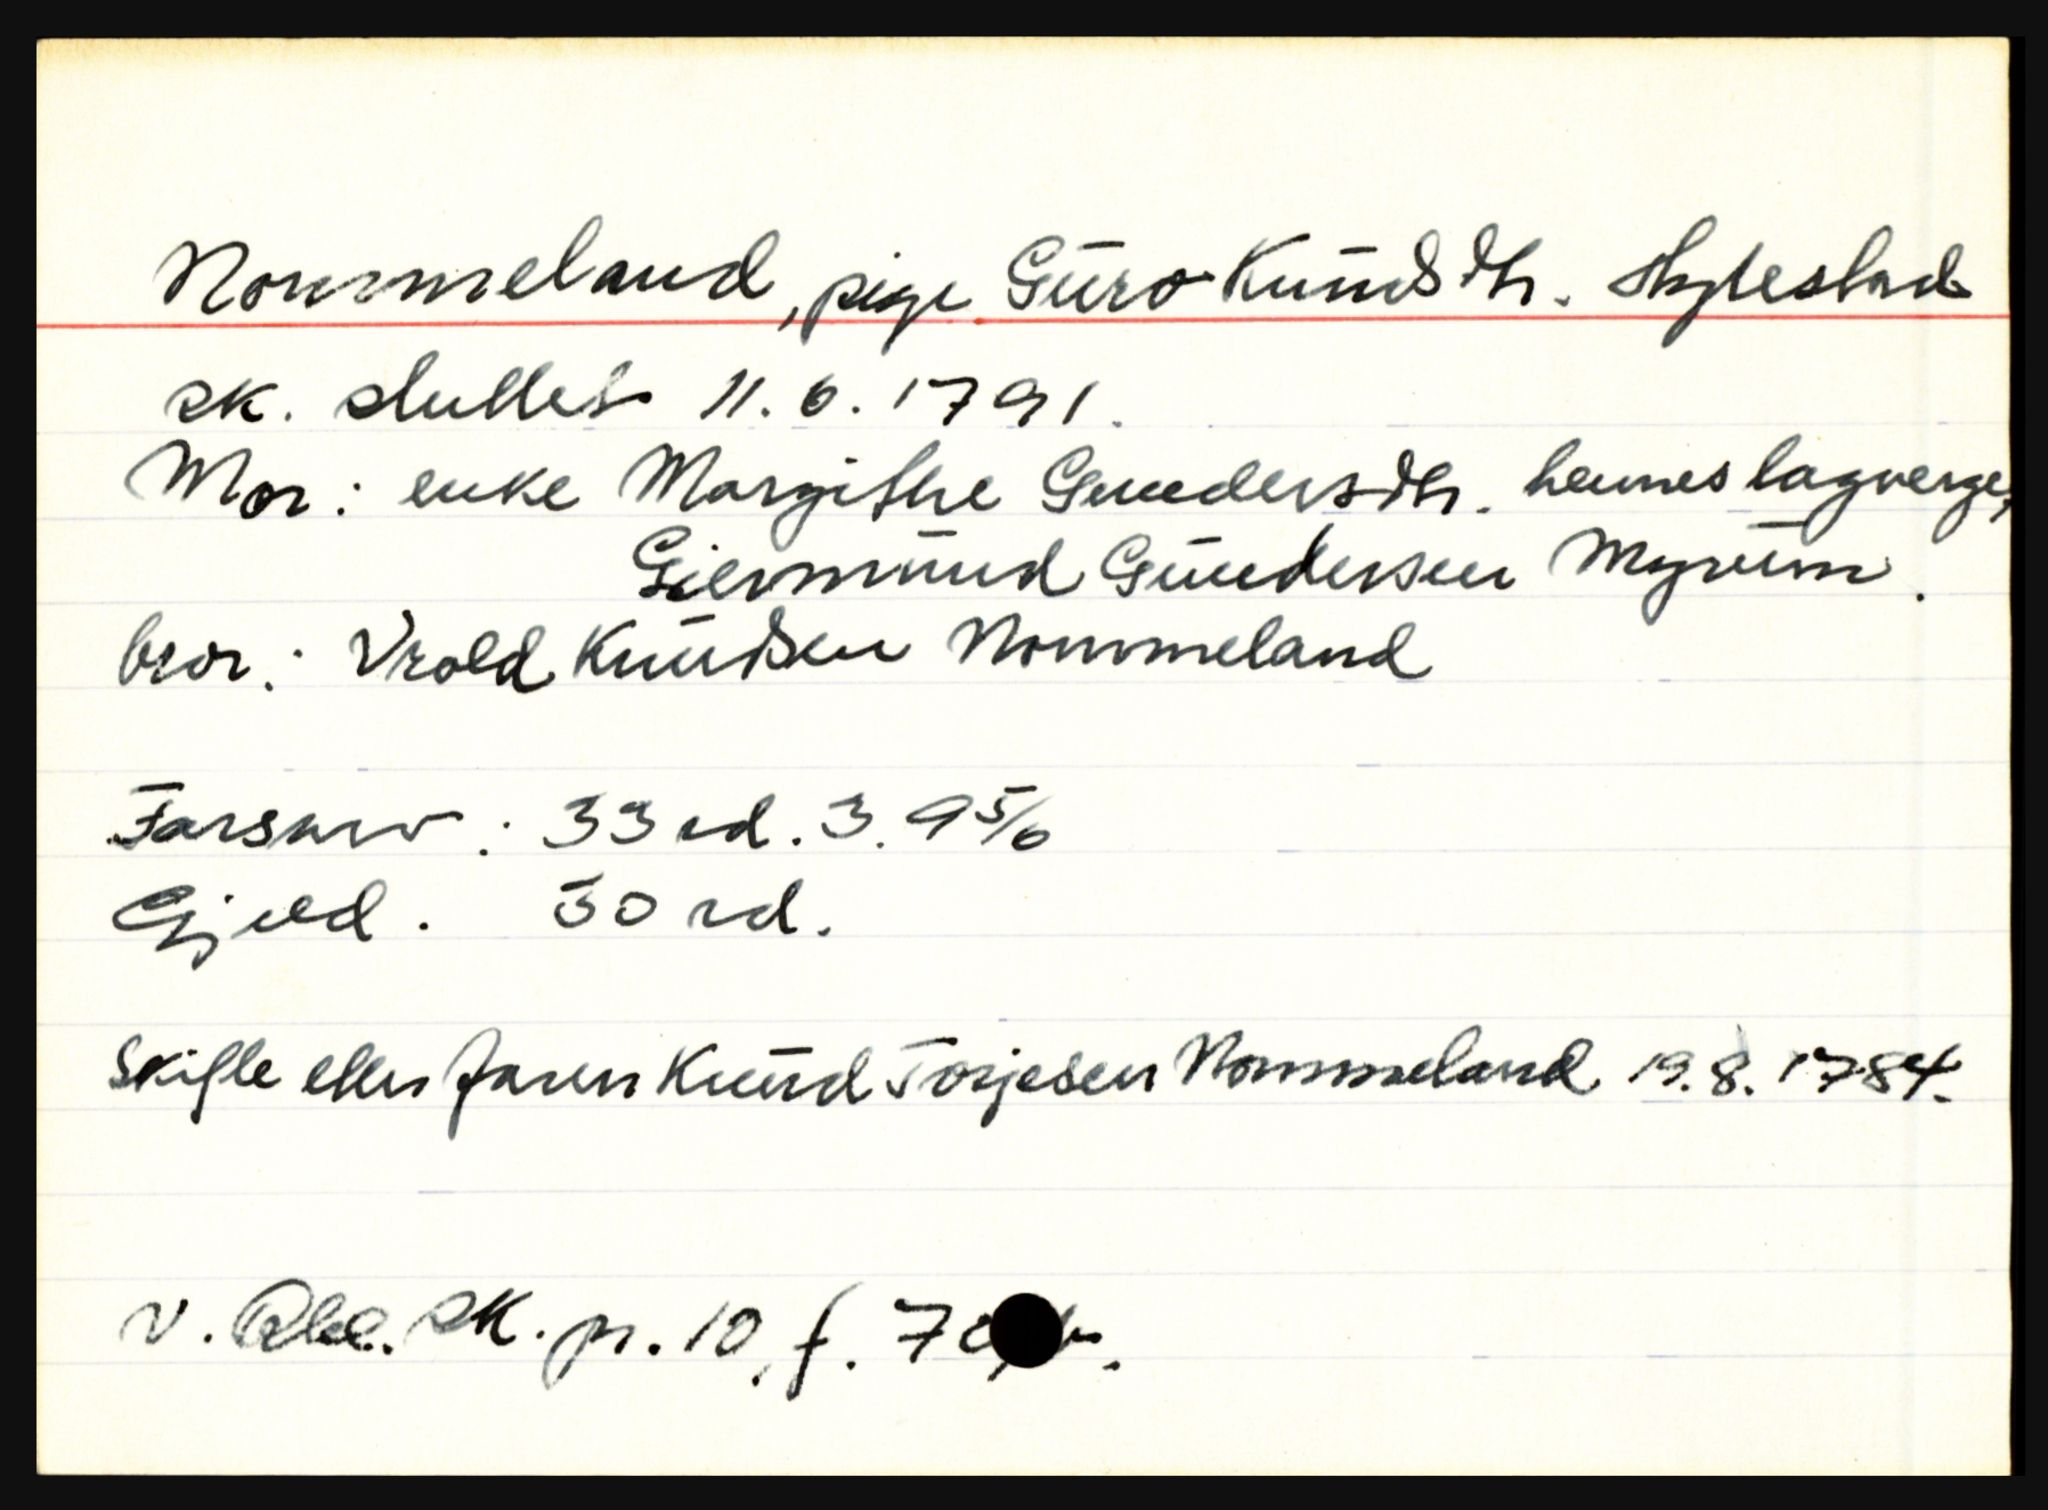 Nommeland, pige Guro Knudsdtr. Hylestad
sk. sluttet 11.6.1791.
Mor: enke Margithe Gundersdtr. hennes lagverge,
Giermund Gundersen Myrum.
bror: Vrold Knudsen Nommeland
Farsarv: 33 rd. 3. 9 5/6
Gjeld. 30 rd.
Skifte etter faren Knud Torjesen Nommeland 19.8.1784.
V. Rbl. sk. pr. 10, f.